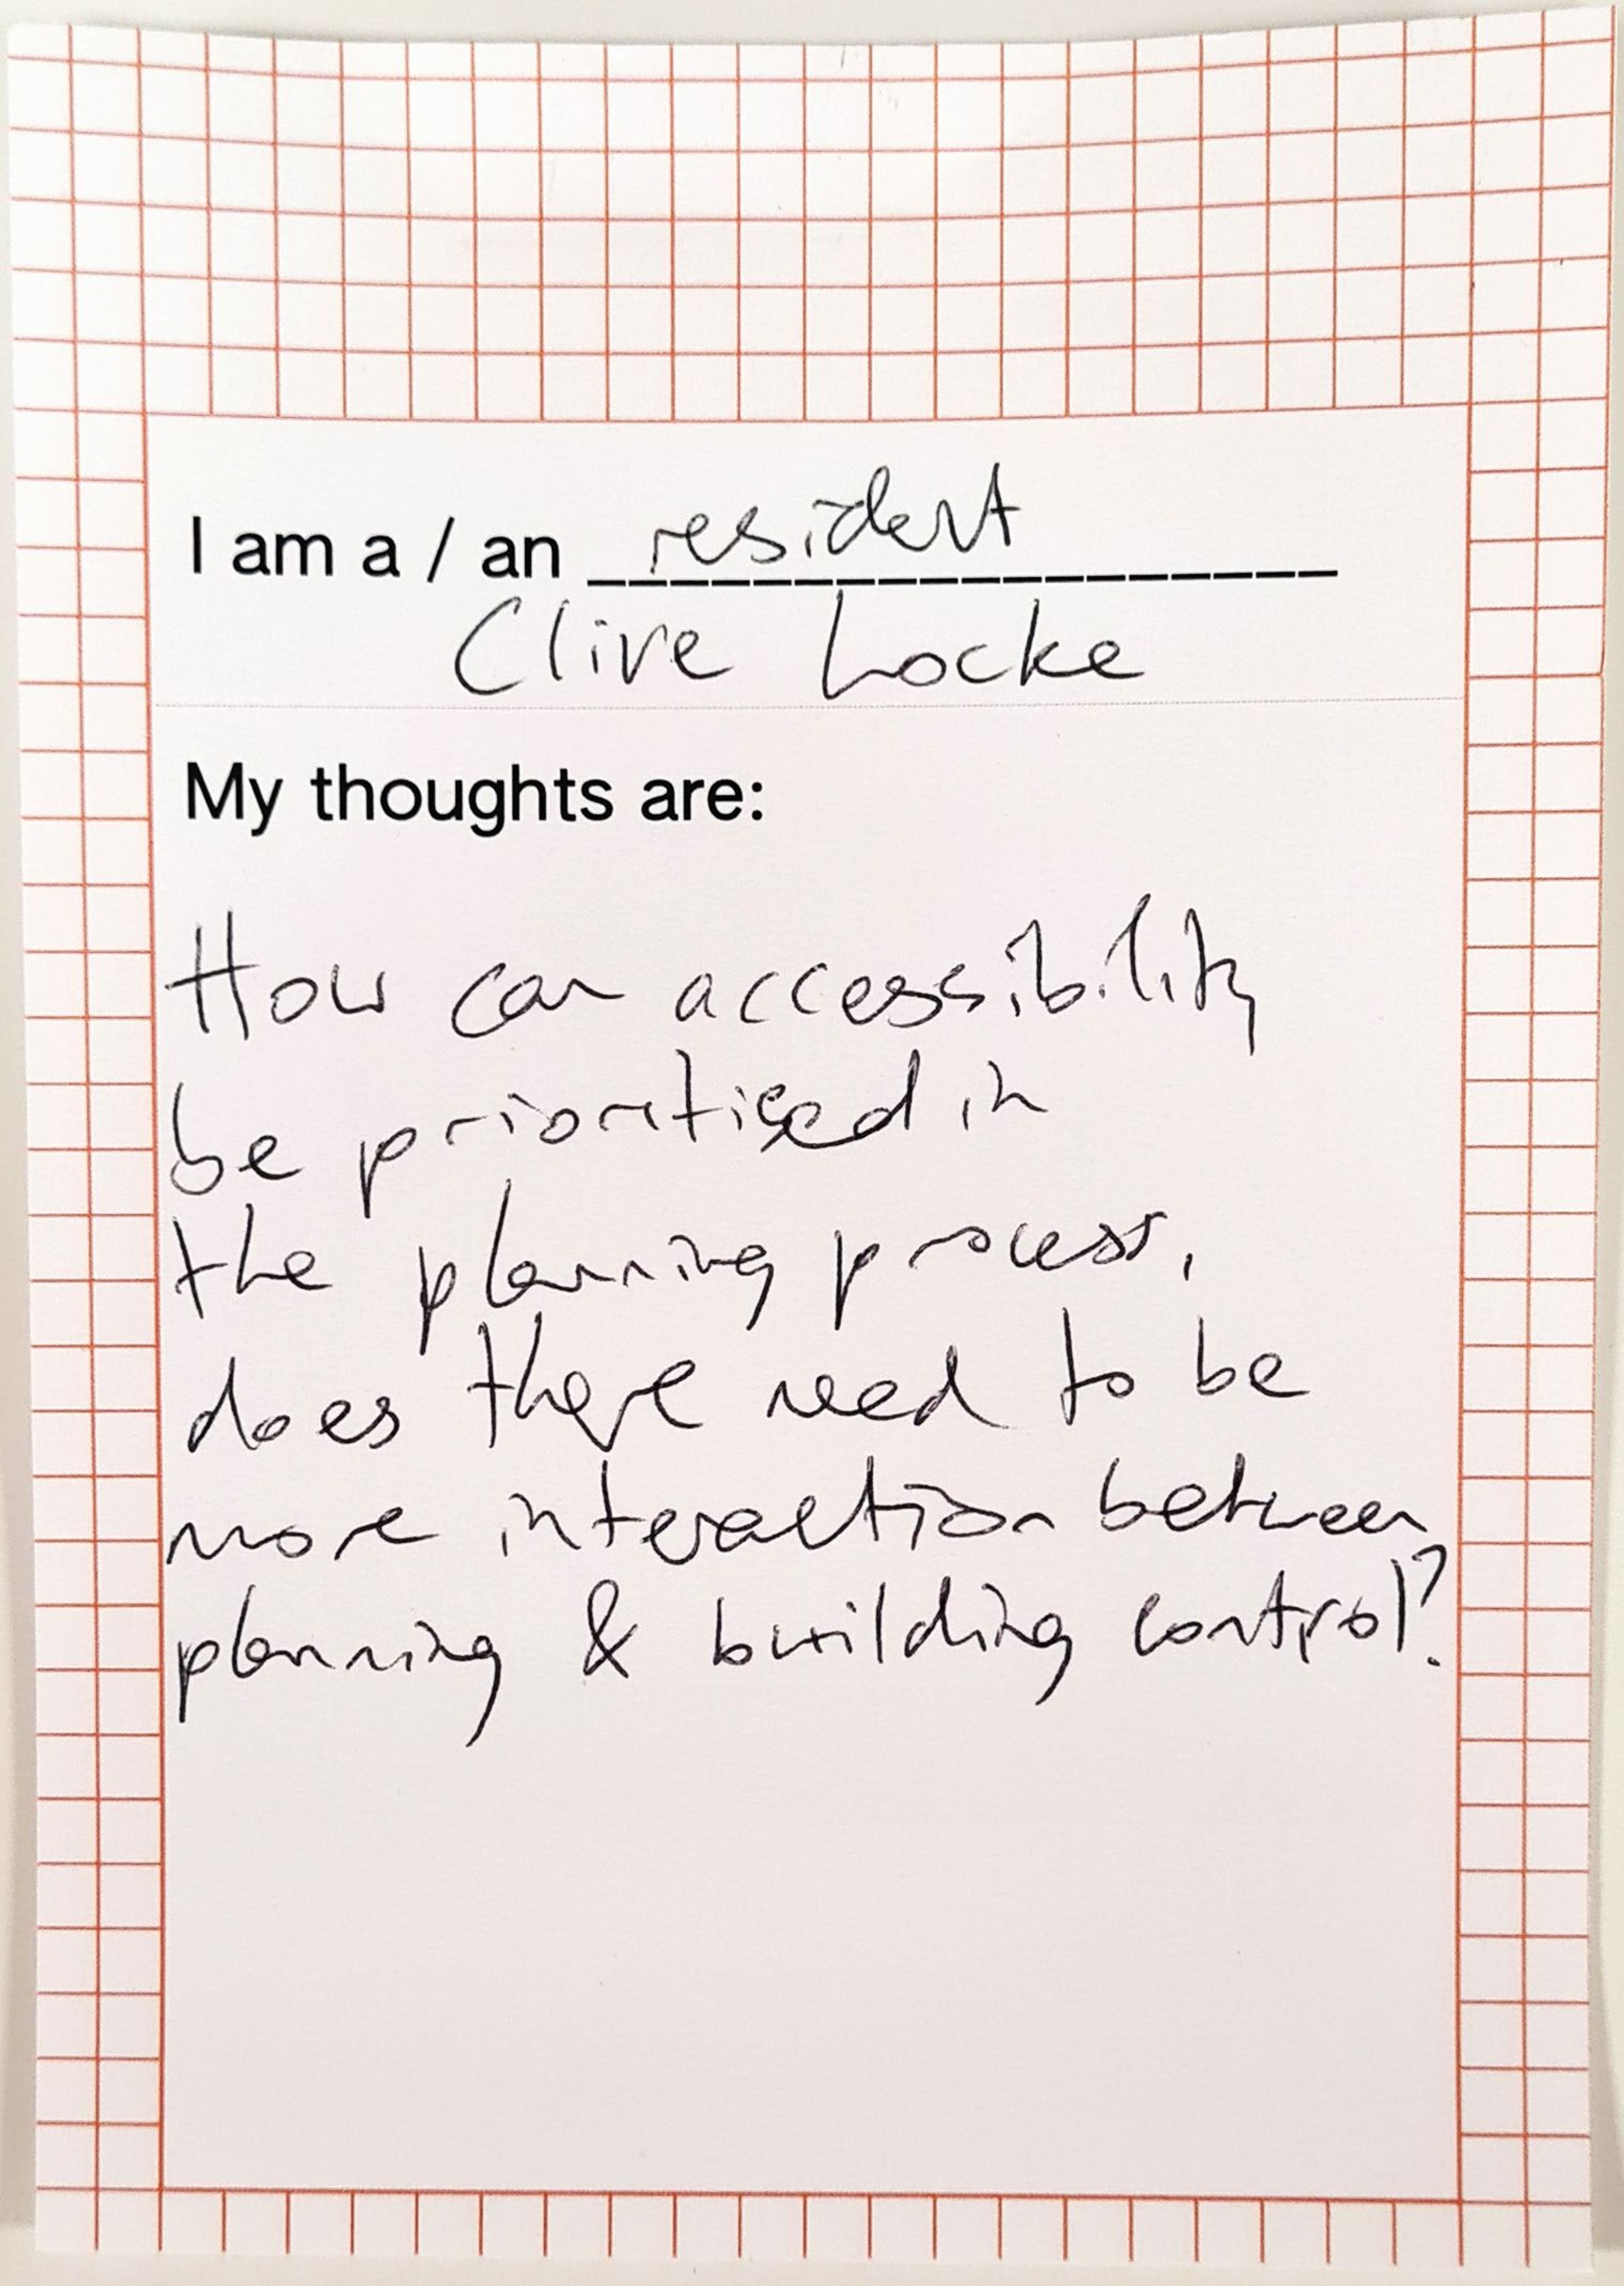 I am a / an resident
Clive Locke
My thoughts are:
How can accessibility
be prioritised in
the planning process,
does there need to be
more interaction between
planning & building control?